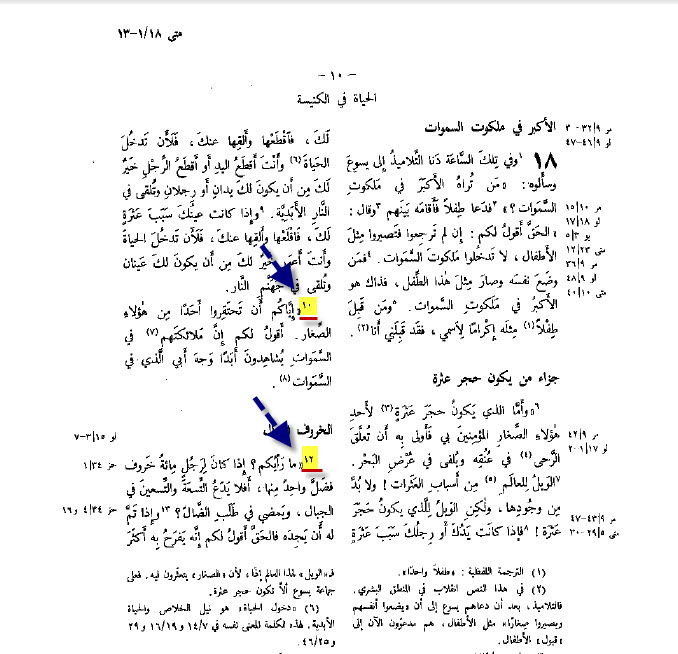 متى ١/١٨-١٣
- ١٠ -
الحياة في الكنيسة
الأكبر في ملكوت السموات
مر ٣٢/٩-٣
لو ٤٦/٩-٤٧
١٨ ١وفي تِلكَ السَّاعَة دَنا التَّلاميذُ إِلى يسوعَ
وسأَلوه: «مَن تُراهُ الأَكبَرُ في مَلكوتِ
السَّمَوات؟» ٢فدَعا طِفلاً فأَقامَه بَينَهم ٣وقال:
«الحَقَّ أَقولُ لكم: إِن لم تَرجعوا فتَصيروا مِثلَ
الأَطفال، لا تَدخُلوا مَلكوتَ السَّمَوات. ٤فمَن
وضَعَ نفسَه وصارَ مِثلَ هٰذا الطِّفل، فذاك هو
الأَكبرُ في مَلكوتِ السَّموات. ٥ومَن قَبِلَ
طِفلاً(١) مِثلَه إِكراماً لِاسمي، فقد قَبِلَني أَنا(٢).
مر ١٥/١٠
لو ١٧/١٨
يو ٥/٣
متى ١٢/٢٣
مر ٣٦/٩
لو ٤٨/٩
متى ٤٠/١٠
جزاء من يكون حجر عثرة
٦وأَمَّا الذي يَكونُ حجَرَ عَثرَةٍ(٣) لأَحدِ
هٰؤلاءِ الصِّغارِ المؤمِنينَ بي فأَولى بِه أَن تُعلَّقَ
الرَّحى(٤) في عُنُقِه ويُلقى في عُرْضِ البَحْر.
٧الوَيلُ لِلعالَمِ(٥) مِن أَسبابِ العَثَرات! ولا بُدَّ
مِن وجُودِها، ولٰكِنِ الوَيلُ لِلَّذي يكونُ حَجَرَ
عَثرَة! ٨فإِذا كانَت يَدُكَ أَو رِجلُكَ سَبَبَ عَثرَةٍ
مر ٤٢/٩
لو ١/١٧-٢
مر ٤٣/٩-٤٧
متى ٢٩/٥-٣٠
لَكَ، فاقطَعْها وأَلقِها عنكَ، فَلَأَن تَدخُلَ
الحَياةَ(٦) وأَنتَ أَقطَعُ اليدِ أَو أَقطَعُ الرِّجْلِ خَيرٌ
لَكَ مِن أَن يكونَ لَكَ يَدانِ أَو رِجلانِ وتُلقى في
النَّارِ الأَبَدِيَّة. ٩وإِذا كانت عَينُكَ سَبَبَ عَثرَةٍ
لَكَ، فَاقْلَعْها وأَلقِها عنكَ، فَلَأَن تَدخُلَ الحَياةَ
وأَنتَ خَيرٌ لَكَ مِن أَن يكونَ لَكَ عَينان
وتُلقى في جَهَنَّمِ النَّار.
١٠«إِيَّاكُم أَن تَحتَقِروا أَحَدًا مِن هٰؤلاءِ
الصِّغار. أَقولُ لكم إِنَّ مَلائكَتَهم(٧) في
السَّمَواتِ يُشاهِدونَ أَبَدًا وَجهَ أَبي الَّذي في
السَّمَوات(٨).
الخروف
لو ٣/١٥-٧
١٢«ما رَأْيُكم؟ إِذا كانَ لِرَجُلٍ مِائةُ خَروفٍ
فضَلَّ واحِدٌ مِنها، أَفلا يَدَعُ التِّسعَةَ والتِّسعينَ في
الجِبال، ويَمضي في طَلَبِ الضَّالّ؟ ١٣وإِذا تَمَّ
له أَن يَجِدَه فالحَقَّ أَقولُ لكم إِنَّه يَفرَحُ بِه أَكثَرَ
حز ١/٣٤
حز ٤/٣٤ و١٦
(١) الترجمة اللفظية: «طفلاً واحدًا».
(٢) في هذا النص انقلاب في المنطق البشري.
فالتلاميذ، بعد أن دعاهم يسوع إلى أن «يضعوا أنفسهم
ويصيروا صغارًا» مثل الأطفال، هم مدعوّون الآن إلى
«قبول» الأطفال.
فـ«الويل» لهذا العالم إذًا، لأن «الصغار» يتعثّرون فيه. فعلى
جماعة يسوع ألاّ تكون حجر عثرة.
(٦) «دخول الحياة» هو نيل الخلاص والحياة
الأبدية. لهذه الكلمة المعنى نفسه في ١٤/٧ و١٦/١٩ و٢٩
و٤٦/٢٥.